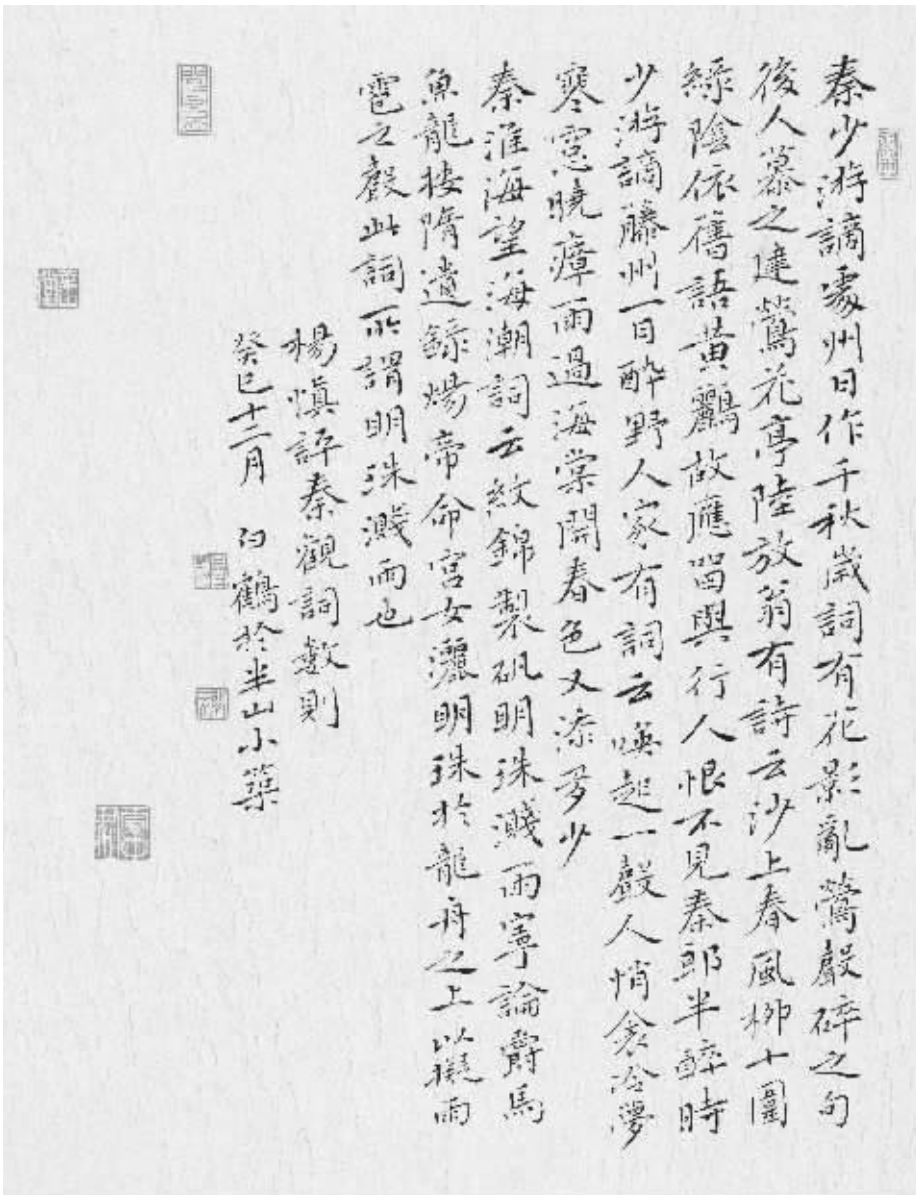 秦少游謫處州日作千秋歲詞有花影亂鶯聲碎之句
後人慕之建鶯花亭陸放翁有詩云沙上春風柳十圍
綠陰依舊語黃鸝故應留與行人恨不見秦郎半醉時
少游謫藤州一日醉野人家有詞云喚起一聲人悄衾冷夢
寒窓曉瘴雨過海棠開春色又添多少
秦淮海望海潮詞云紋錦製帆明珠濺雨寧論爵馬
魚龍按隋遺錄煬帝命宮女灑明珠於龍舟之上以擬雨
雹之聲此詞所謂明珠濺雨也
楊慎評秦觀詞數則
癸巳十二月 白鶴於半山小築